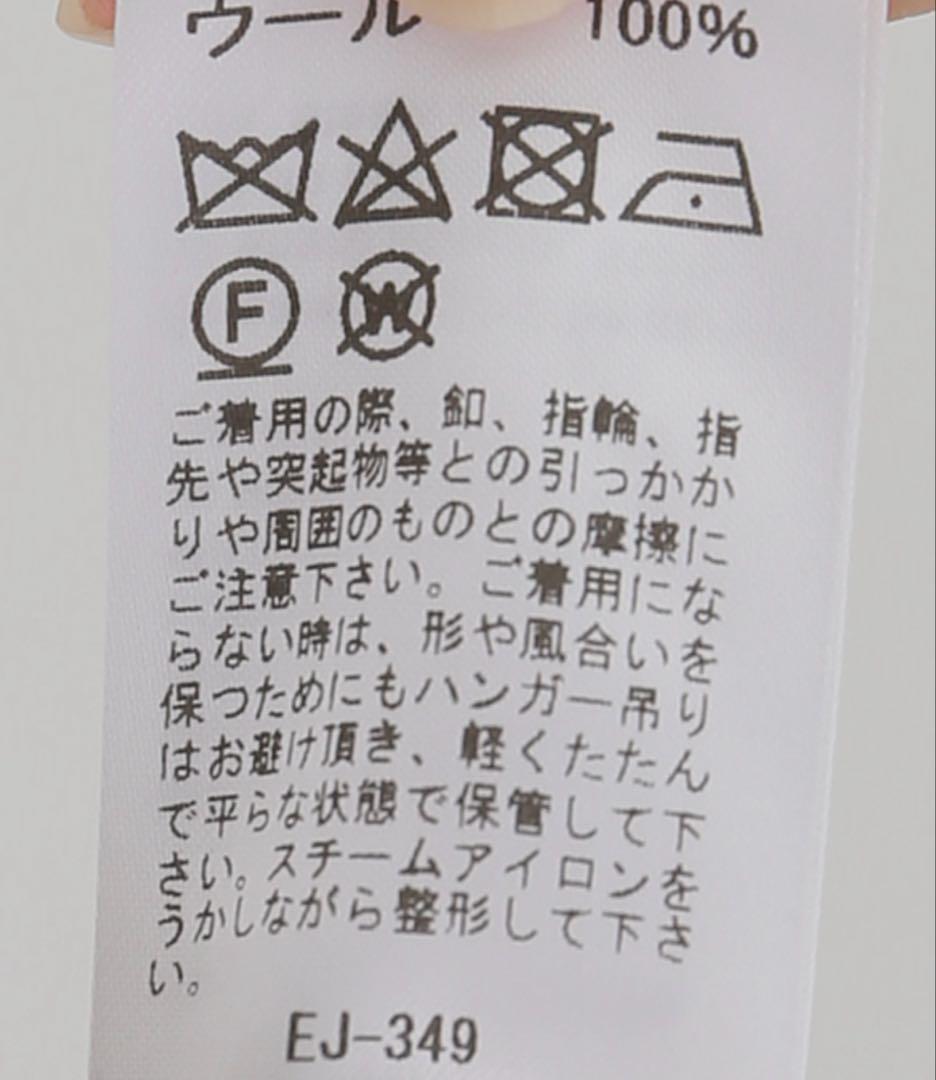 ウール 100%
F W
ご着用の際、釦、指輪、指
先や突起物等との引っかか
りや周囲のものとの摩擦に
ご注意下さい。ご着用にな
らない時は、形や風合いを
保つためにもハンガー吊り
はお避け頂き、軽くたたん
で平らな状態で保管して下
さい。スチームアイロンを
うかしながら整形して下さ
い。
EJ-349